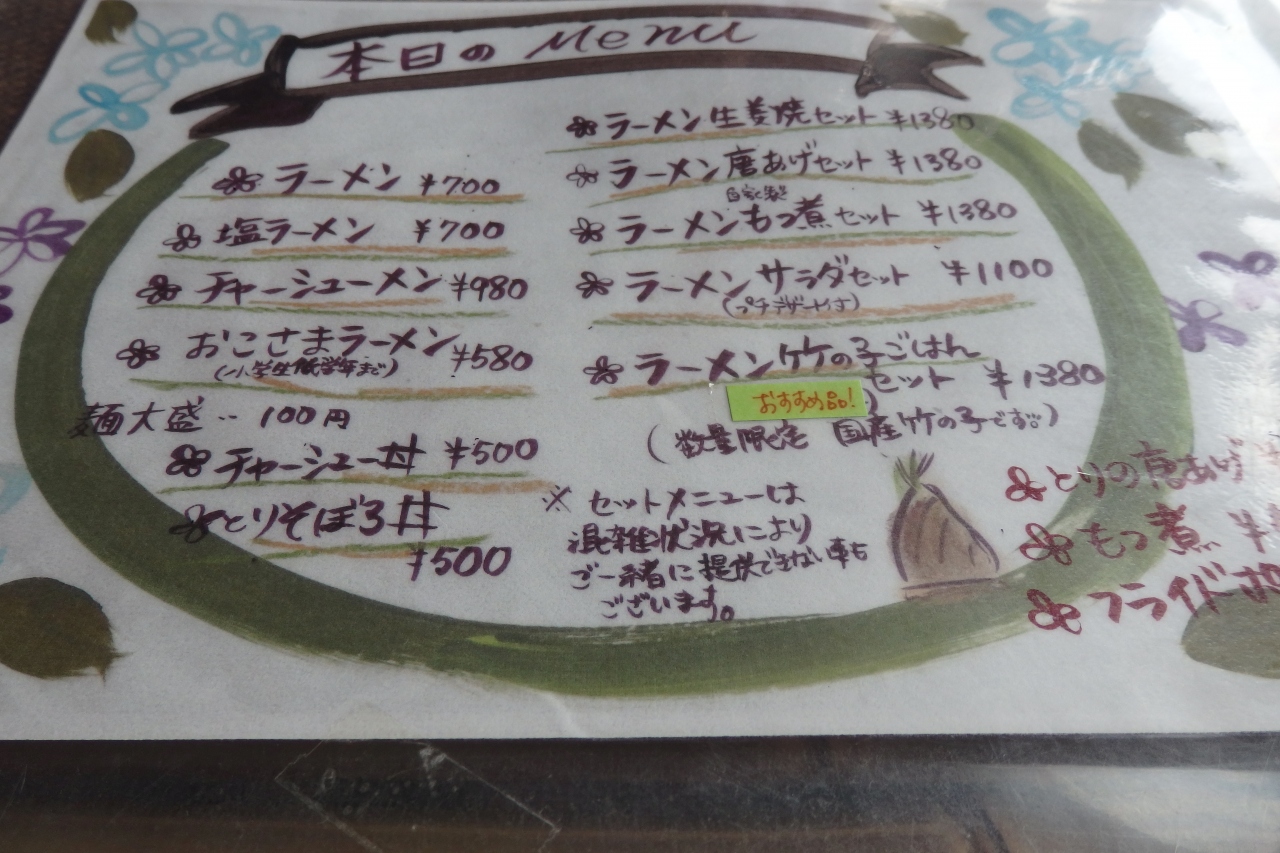 本日の Menu
ラーメン ¥700
塩ラーメン ¥700
チャーシューメン ¥980
おこさまラーメン ¥580
(小学生低学年まで)
麺大盛‥100円
チャーシュー丼 ¥500
とりそぼろ丼
¥500
ラーメン生姜焼セット ¥1380
ラーメン唐あげセット ¥1380
自家製
ラーメンもつ煮セット ¥1380
ラーメンサラダセット ¥1100
(プチデザート付)
ラーメン竹の子ごはん
セット ¥1380
おすすめ品!
(数量限定 国産竹の子です。)
※ セットメニューは
混雑状況により
ご一緒に提供できない事も
ございます。
とりの唐あげ
もつ煮 ¥
フライドポ